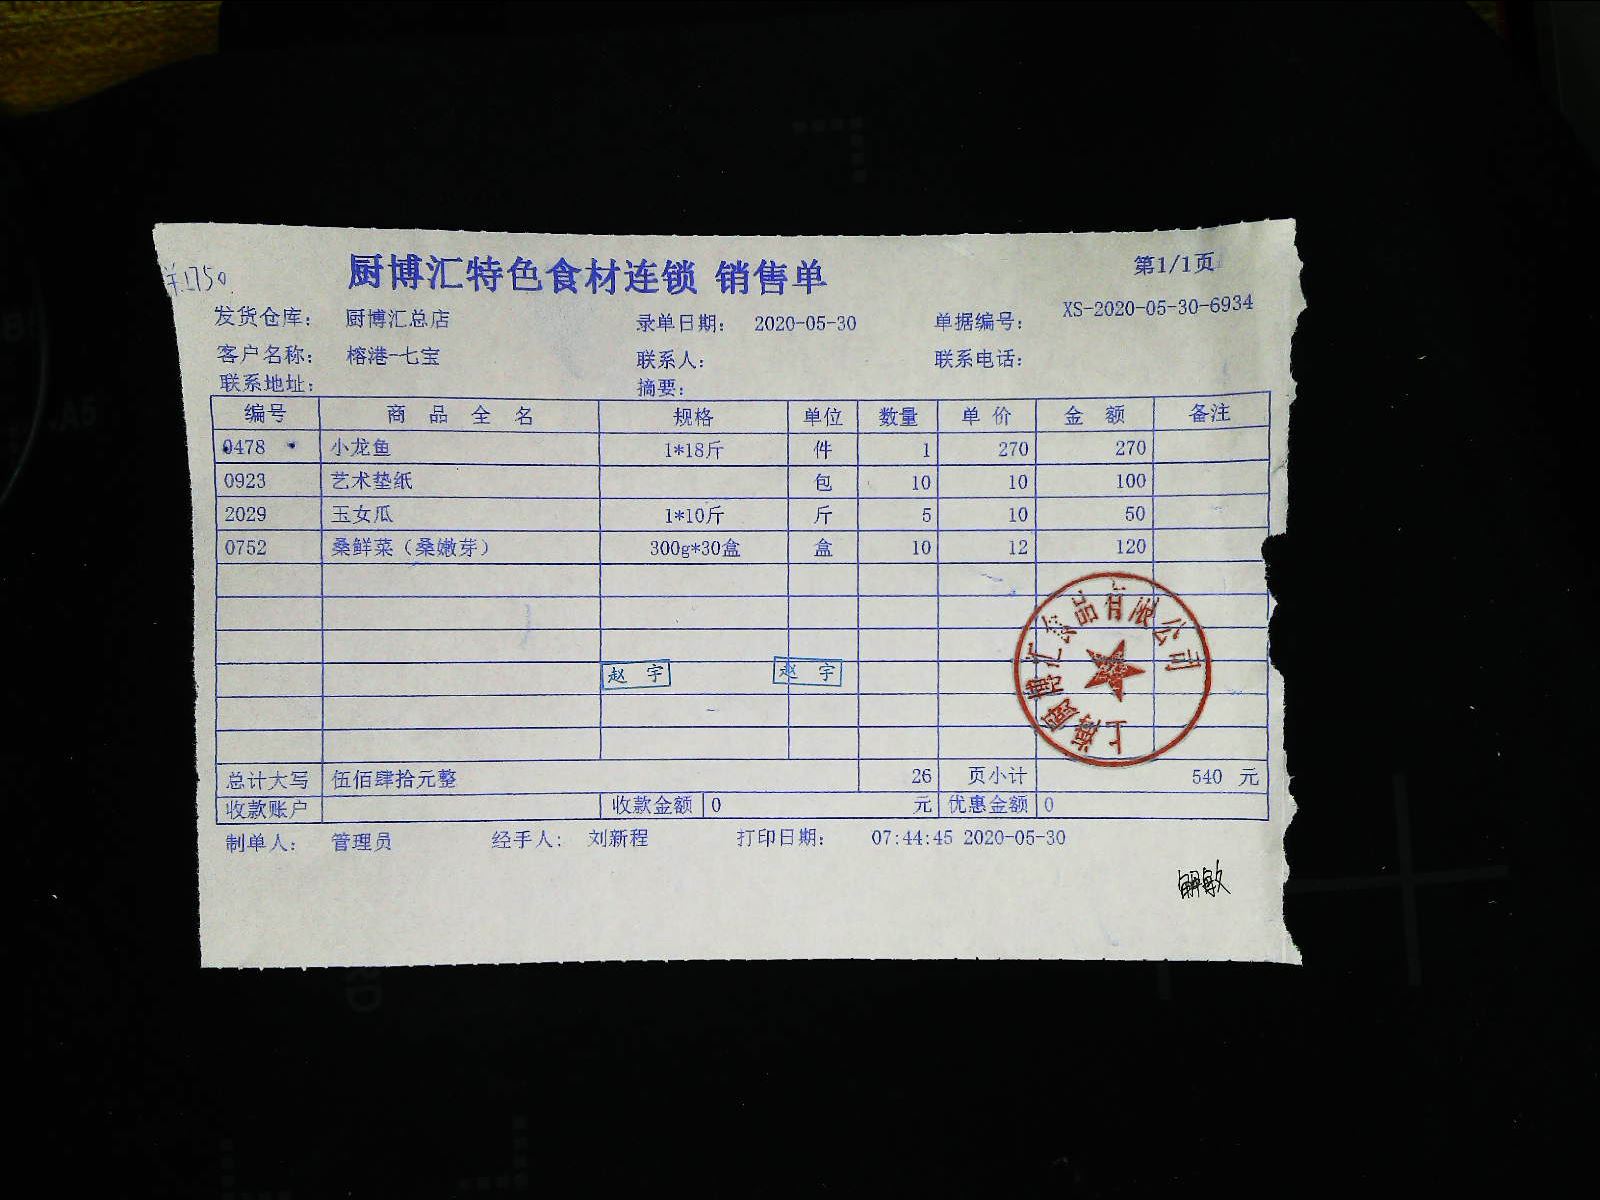 厨博汇特色食材连锁 销售单
第1/1页
¥1750
发货仓库： 厨博汇总店 录单日期： 2020-05-30 单据编号： XS-2020-05-30-6934
客户名称： 榕港-七宝 联系人： 联系电话：
联系地址： 摘要：
编号 商 品 全 名 规格 单位 数量 单 价 金 额 备注
0478 小龙鱼 1*18斤 件 1 270 270
0923 艺术垫纸 包 10 10 100
2029 玉女瓜 1*10斤 斤 5 10 50
0752 桑鲜菜（桑嫩芽） 300g*30盒 盒 10 12 120
上海厨博汇食品有限公司
赵 宇 赵 宇
总计大写 伍佰肆拾元整 26 页小计 540 元
收款账户 收款金额 0 元 优惠金额 0
制单人： 管理员 经手人： 刘新程 打印日期： 07:44:45 2020-05-30
解敏
A5